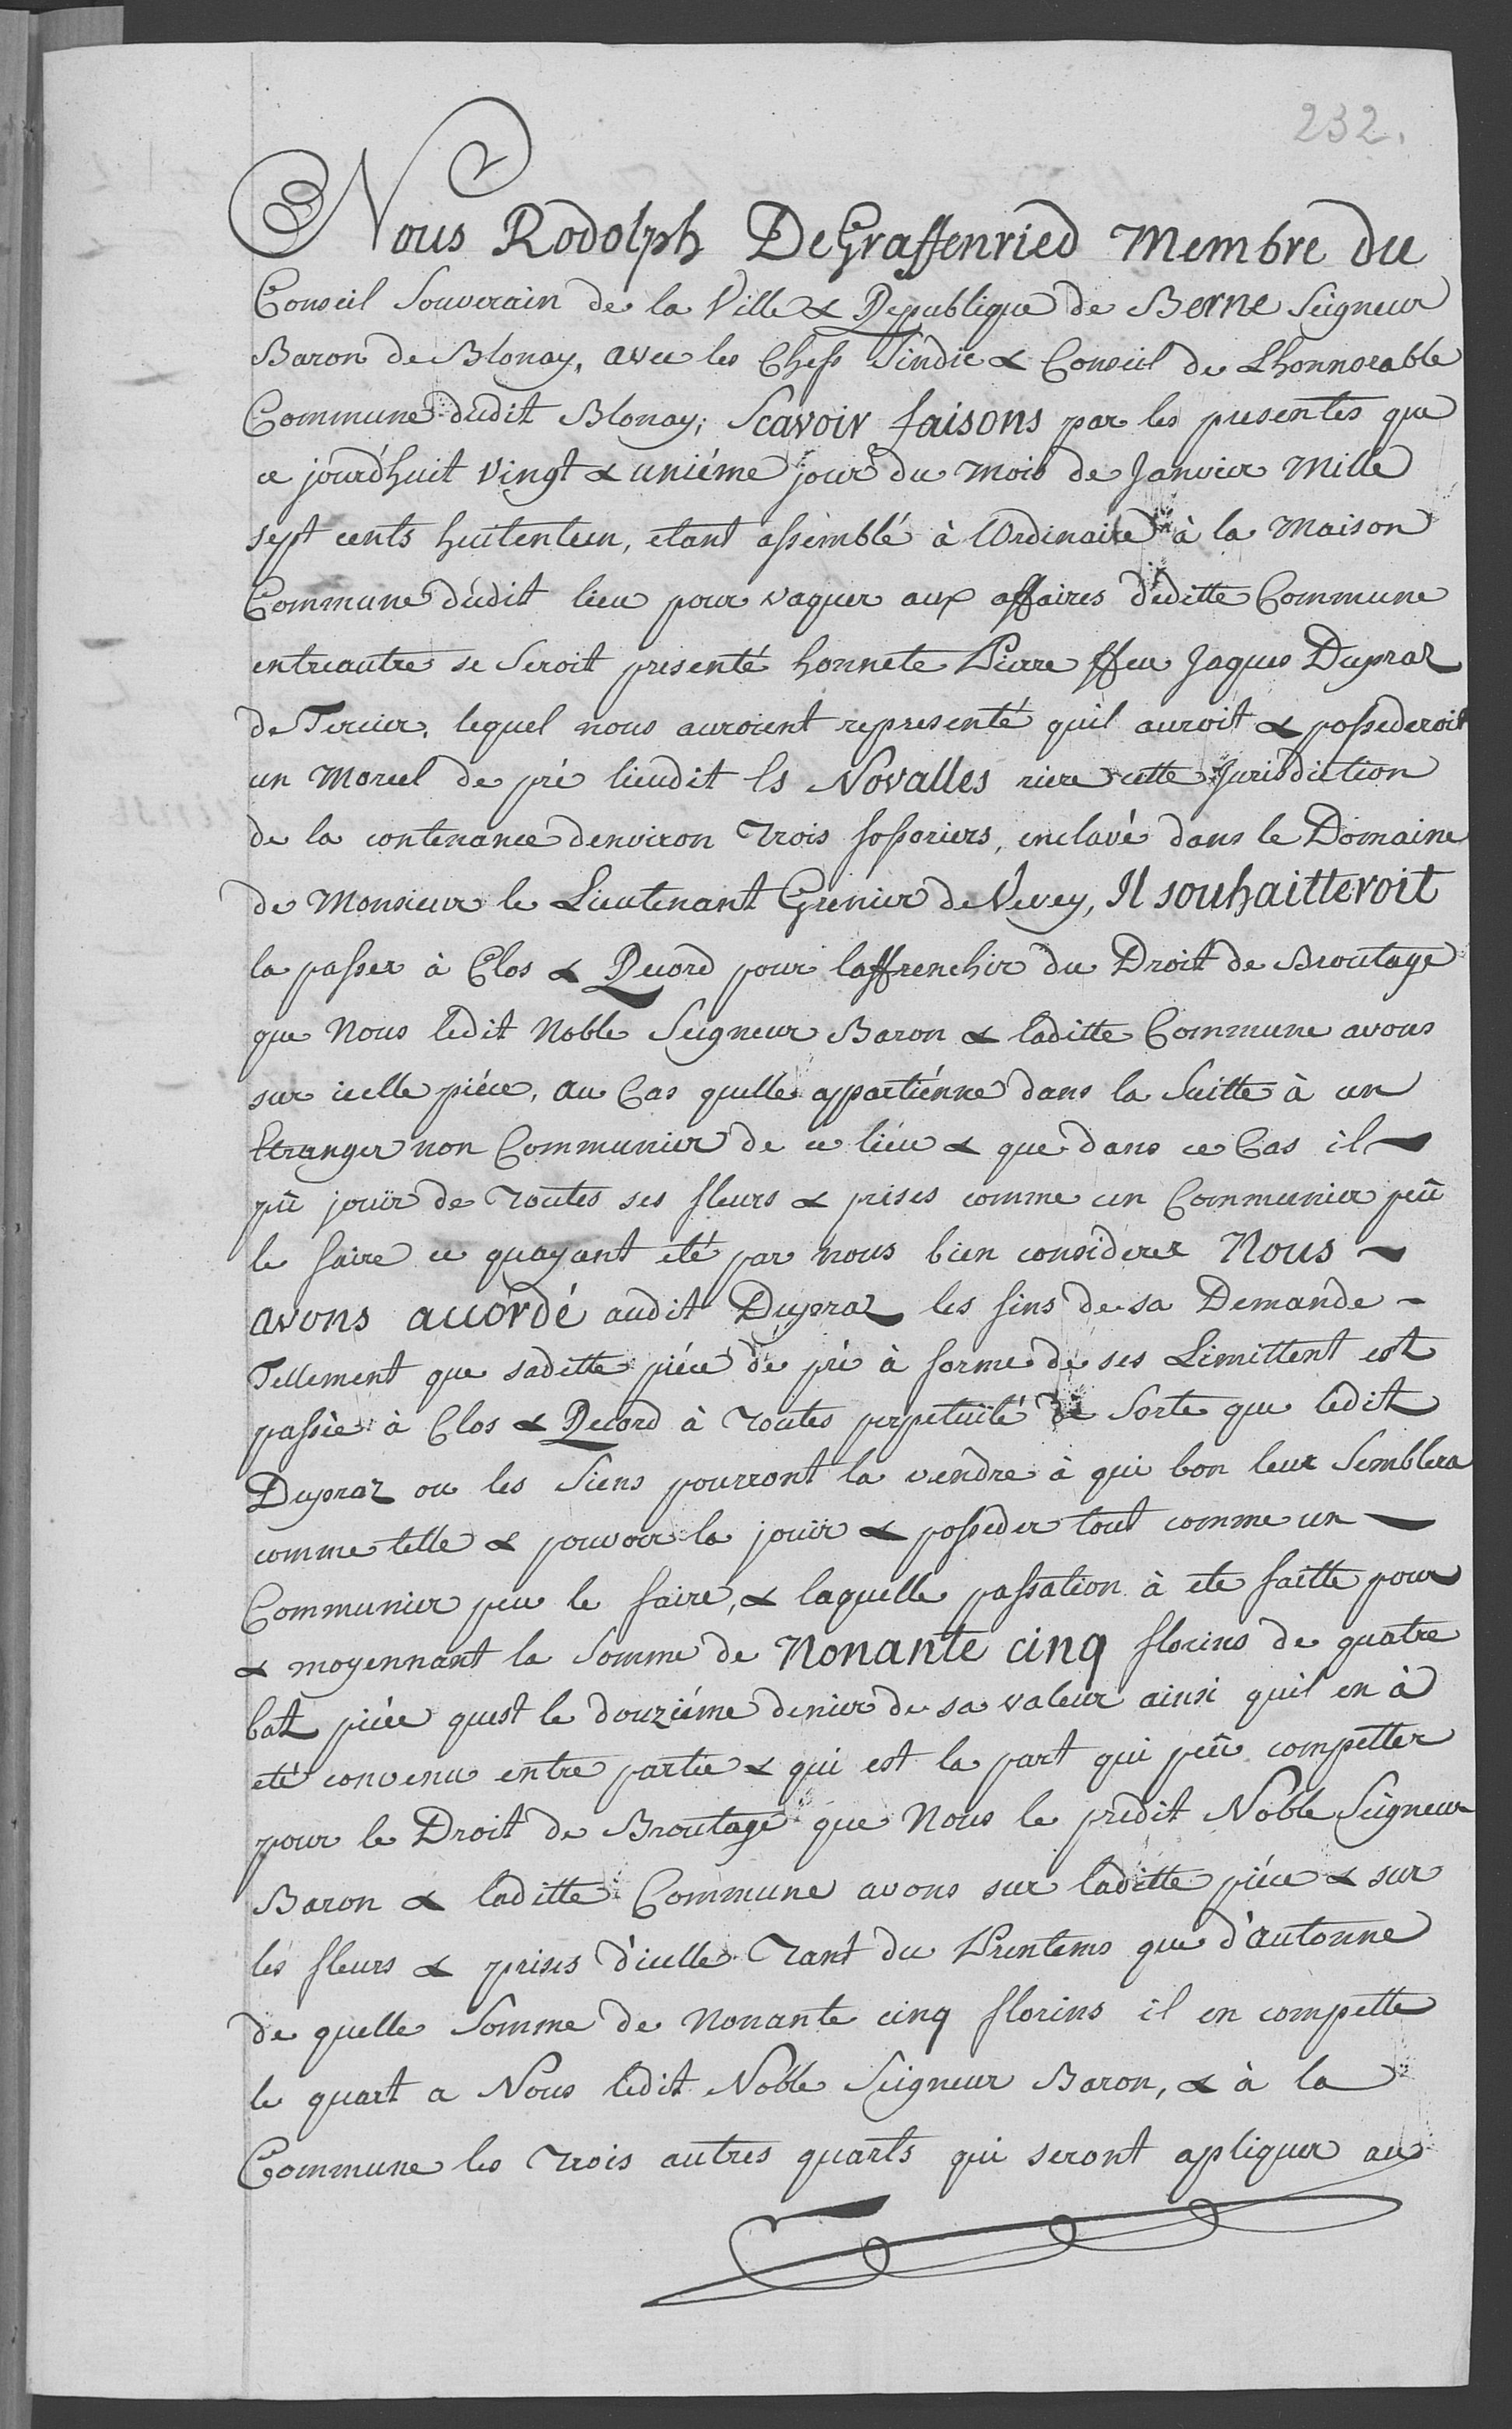 232.
Nous Rodolph DeGraffenried Membre du
Conseil Souverain de la Ville & Republique de Berne Seigneur
Baron de Blonay, avec les Chefs Sindic & Conseil de Lhonnorable
Commune dudit Blonay; Scavoir faisons par les presentes que
ce jourd'huit vingt & uniéme jour du mois de Janvier Mille
sept cents huitenteun, etant assemblé à lOrdinaire à la Maison
Commune dudit lieu pour vaquer aux affaires deditte Commune
entreautre se Seroit presenté honnete Pierre ffeu Jaques Dupraz
de Tercier, lequel nous auroient representé quil auroit & possederoit
un Morcel de pré lieudit ls Novalles riere cette Jurisdiction
de la contenance denviron Trois fossoriers, enclavé dans le Domaine
de Monsieur le Lieutenant Grenier de Vevey, Il souhaitteroit
la passer à Clos & Record pour laffrenchir du Droit de Broutage
que Nous ledit Noble Seigneur Baron & laditte Commune avons
sur icelle piéce, au Cas quelle appartiénne dans la Suitte à un
Etranger non Communier de ce liéu & que dans ce Cas il
pû jouïr de Toutes ses fleurs & prises comme un Communier peû
le faire ce quayant été par nous bien considerer Nous
avons accordé audit Dupraz les fins de sa Demande
Tellement que saditte piéce de pré à forme de ses Limittent est
passée à Clos & Record à Toutes perpetuité de Sorte que ledit
Dupraz ou les Siens pourront la vendre à qui bon leur Semblera
comme telle & pouvoir la jouïr & posseder tout comme un
Communier peu le faire, & laquelle passation à ete faitte pour
& moyennant la Somme de Nonante cinq florins de quatre
batz piéce quest le douziéme denier de sa valeur ainsi quil en à
eté convenu entre partie & qui est la part qui peû competter
pour le Droit de Broutage que Nous le prédit Noble Seigneur
Baron & laditte Commune avons sur laditte piéce & sur
les fleurs & prises d'icelle Tant du Printems que d'autonne
de quelle Somme de Nonante cinq florins il en compette
le quart a Nous ledit Noble Seigneur Baron, & à la
Commune les Trois autres quarts qui seront apliquer au